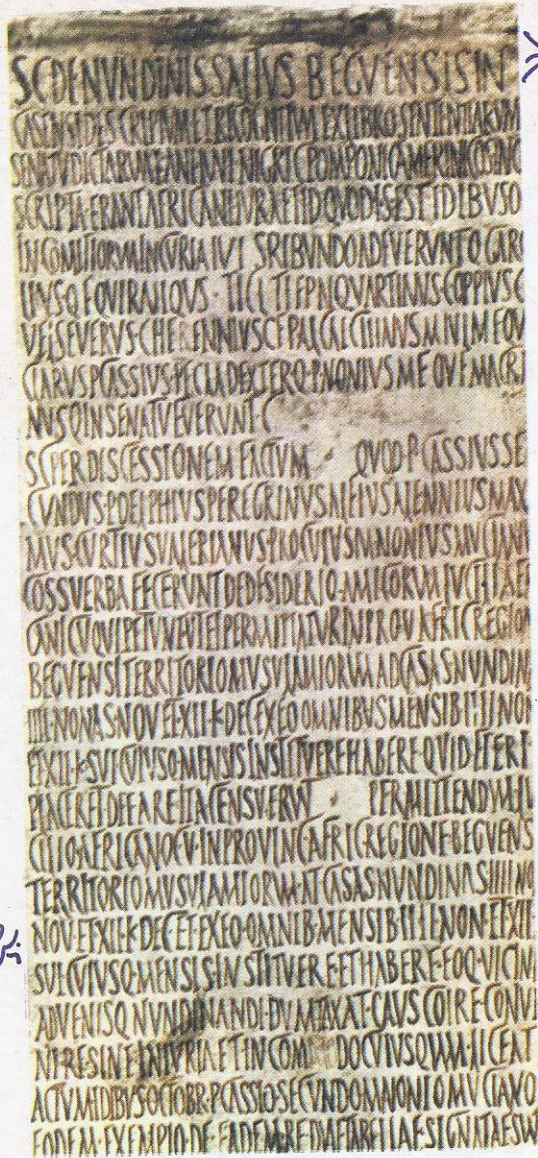 SC DE NVNDINIS SALTVS BEGVENSIS IN
CASENSI DESCRIPTVM ET RECOGNITVM EX LIBRO SENTENTIARVM
SENATV DICTARVM NIGRI C POMPONI CAMERINI COS IN Q
SCRIPTA ERANT AFRICANI IVRA ET ID QVOD IS EST IDIBVS O
IN COMITIO RVM IN CVRIA IVLI SRIBVNDO ADFVERVNT Q GAR
LIVS Q F QVIRAIIQVS TI CL TI F P N QVARTINVS C OPPIVS C
VEL SEVERVS C HERENNIVS C F PAL CAECILIANVS M IVL M F QV
CLARVS P CASSIVS P F CLA DEXTER Q P NONIVS M F OVF MACRI
NVS Q IN SENATV FVERVNT C
SC PER DISCESSIONEM FACTVM QVOD P CASSIVS SE
CVNDVS P DELPHIVS PEREGRINVS ALFIVS ALENNIVS MAX
MVS CVRTIVS VALERIANVS PROCVLVS M NONIVS MVCIAN
COSS VERBA FECERVNT DE DESIDERIO AMICORVM LVCILI AF
CANI C V QVI PETVNT VT EI PERMITTATVR IN PROV AFRIC REGION
BEGVENSI TERRITORIO MVSVLAMIORVM AD CASAS NVNDIN
IIII NONAS NOV ET XII K DEC EX EO OMNIBVS MENSIB IIII NON
ET XII K SVI CVIVSQ MENSIS INSTITVERE HABERE QVID FIERI
PLACERET DE EA RE ITA CENSVERVNT PERMITTENDVM LV
CILIO AFRICANO C V IN PROVINC AFRIC REGIONE BEGVENS
TERRITORIO MVSVLAMIORVM AT CASAS NVNDINAS IIII NO
NOV ET XII K DEC ET EX EO OMNIB MENSIB IIII NON ET XII
SVI CVIVSQ MENSIS INSTITVERE ET HABERE EOQ VICIN
ADVENISQ NVNDINANDI DVMTAXAT CAVS COIRE CONVE
NIRE SINE INIVRIA ET INCOM DO CVIVSQVAM LICEAT
ACTVM IDIBVS OCTOBR P CASSIO SECVNDO M NONIO MVCIANO
EODEM EXEMPLO DE EADEM RE DVAE TABELLAE SIGNATAE SVN